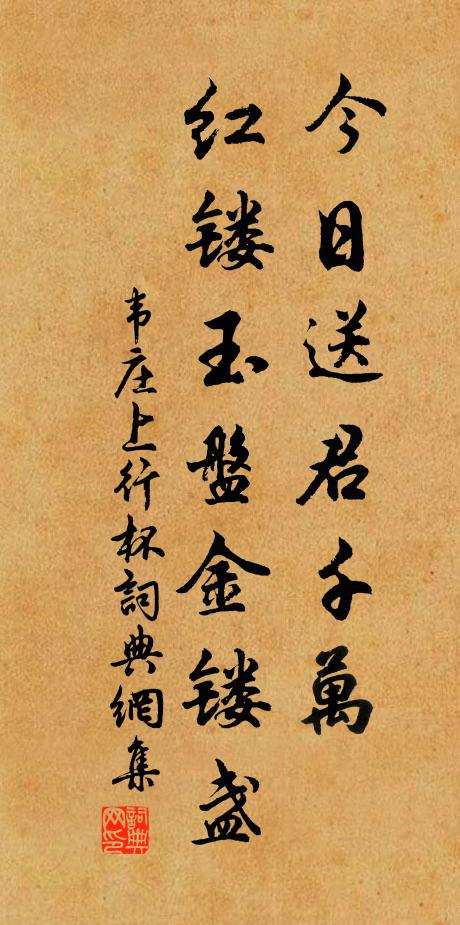 今日送君千萬
红镂玉盤金镂盏
韦庄上行杯詞典網集
詞典网印